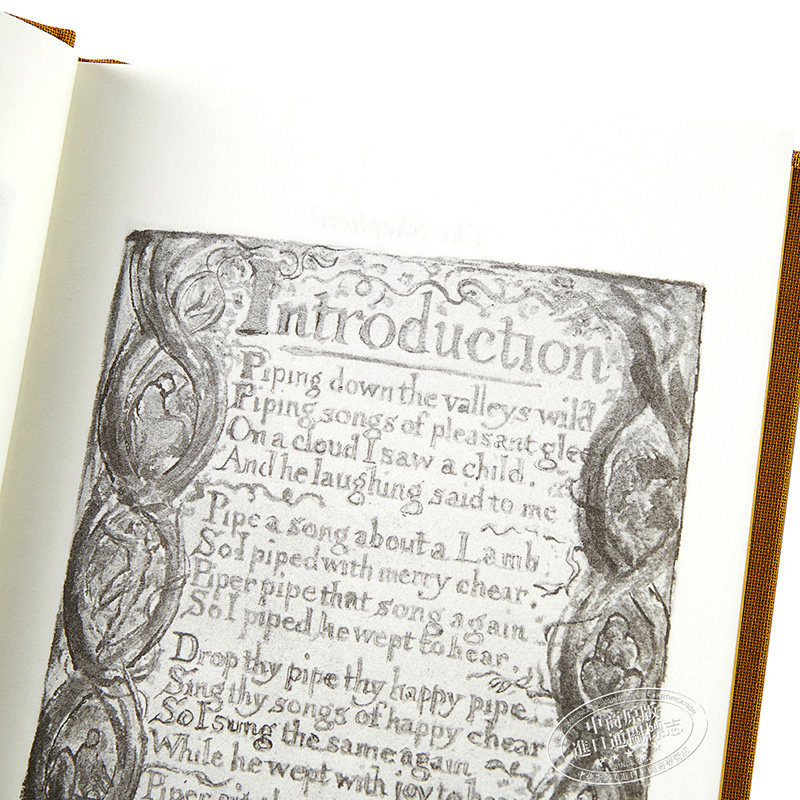 The Shepherd
Introduction
Piping down the valleys wild
Piping songs of pleasant glee
On a cloud I saw a child.
And he laughing said to me
Pipe a song about a Lamb
So I piped with merry chear,
Piper pipe that song again
So I piped, he wept to hear.
Drop thy pipe thy happy pipe
Sing thy songs of happy chear
So I sung the same again
While he wept with joy to hear
Piper sit
中商原版
進口通關标志